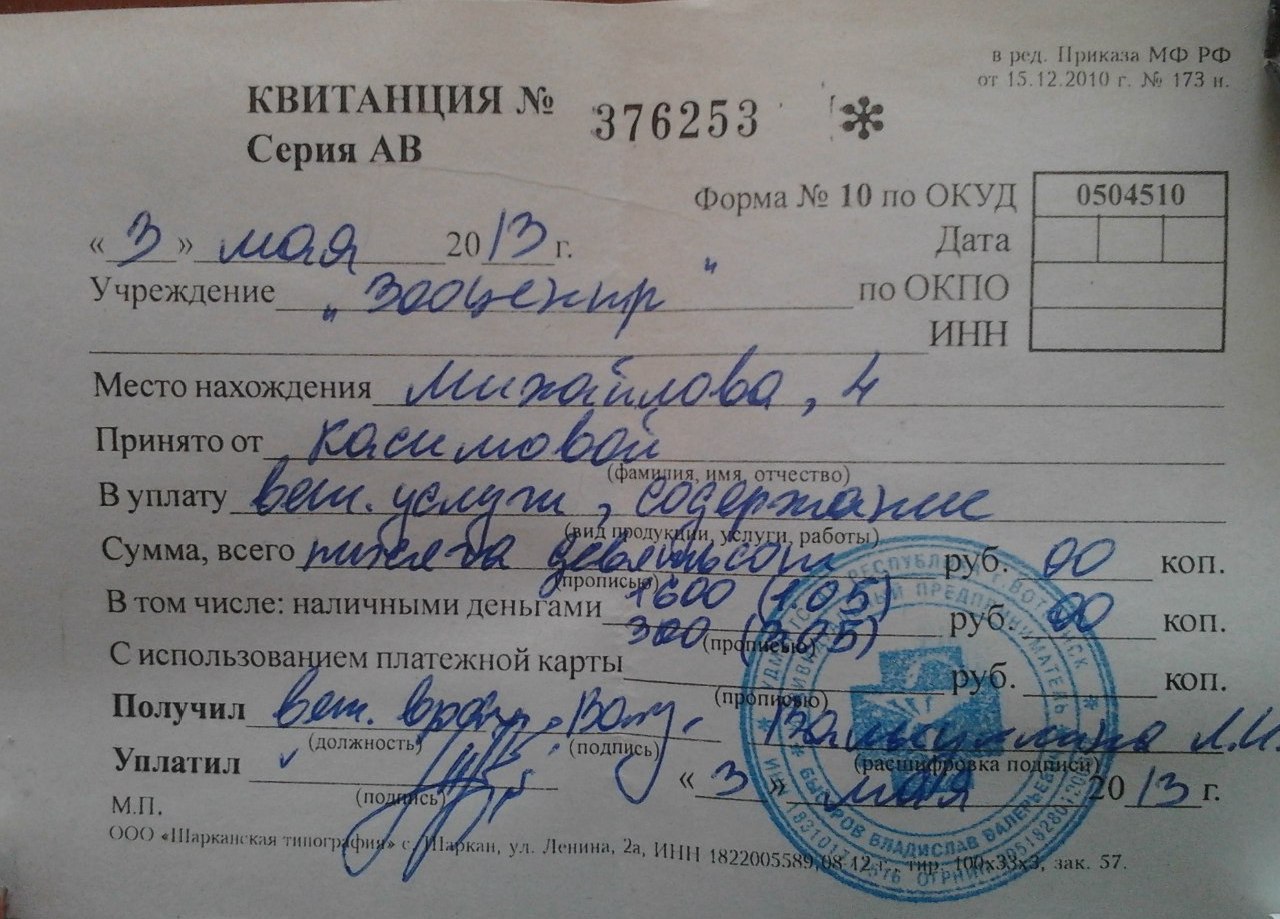 в ред. Приказа МФ РФ
от 15.12.2010 г. № 173 н.
КВИТАНЦИЯ № 376253 *
Серия АВ
Форма № 10 по ОКУД 0504510
« 3 » мая 2013 г. Дата
Учреждение „Зооцентр" по ОКПО
ИНН
Место нахождения Михайлова, 4
Принято от Касимовой
(фамилия, имя, отчество)
В уплату вет. услуги, содержание
(вид продукции, услуги, работы)
Сумма, всего девятьсот руб. 00 коп.
(прописью)
1600 (1.05)
В том числе: наличными деньгами руб. 00 коп.
300 (2.05)
(прописью)
С использованием платежной карты руб. коп.
(прописью)
Получил вет. врач
(должность) (подпись) (расшифровка подписи)
Уплатил « 3 » мая 2013 г.
(подпись)
М.П.
ООО «Шарканская типография» с. Шаркан, ул. Ленина, 2а, ИНН 1822005589,08 12 г., тир. 100х33х3, зак. 57.
РЕСПУБЛИКА г. ВОТКИНСК
ПРЕДПРИНИМАТЕЛЬ
ВЛАДИСЛАВ ВАЛЕРЬЕВИЧ